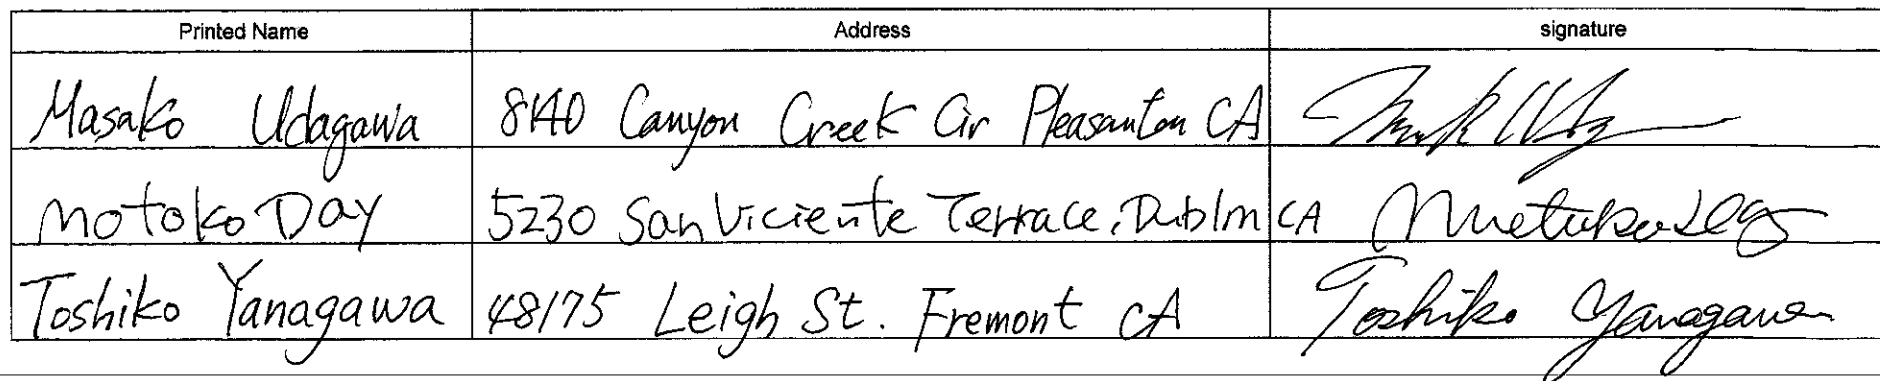 Printed Name Address signature
Masako Udagawa 8140 Canyon Creek Cir Pleasanton CA
Motoko Day 5230 San Viciente Terrace, Dublin CA Motoko Day
Toshiko Yanagawa 48175 Leigh St. Fremont CA Toshiko Yanagawa